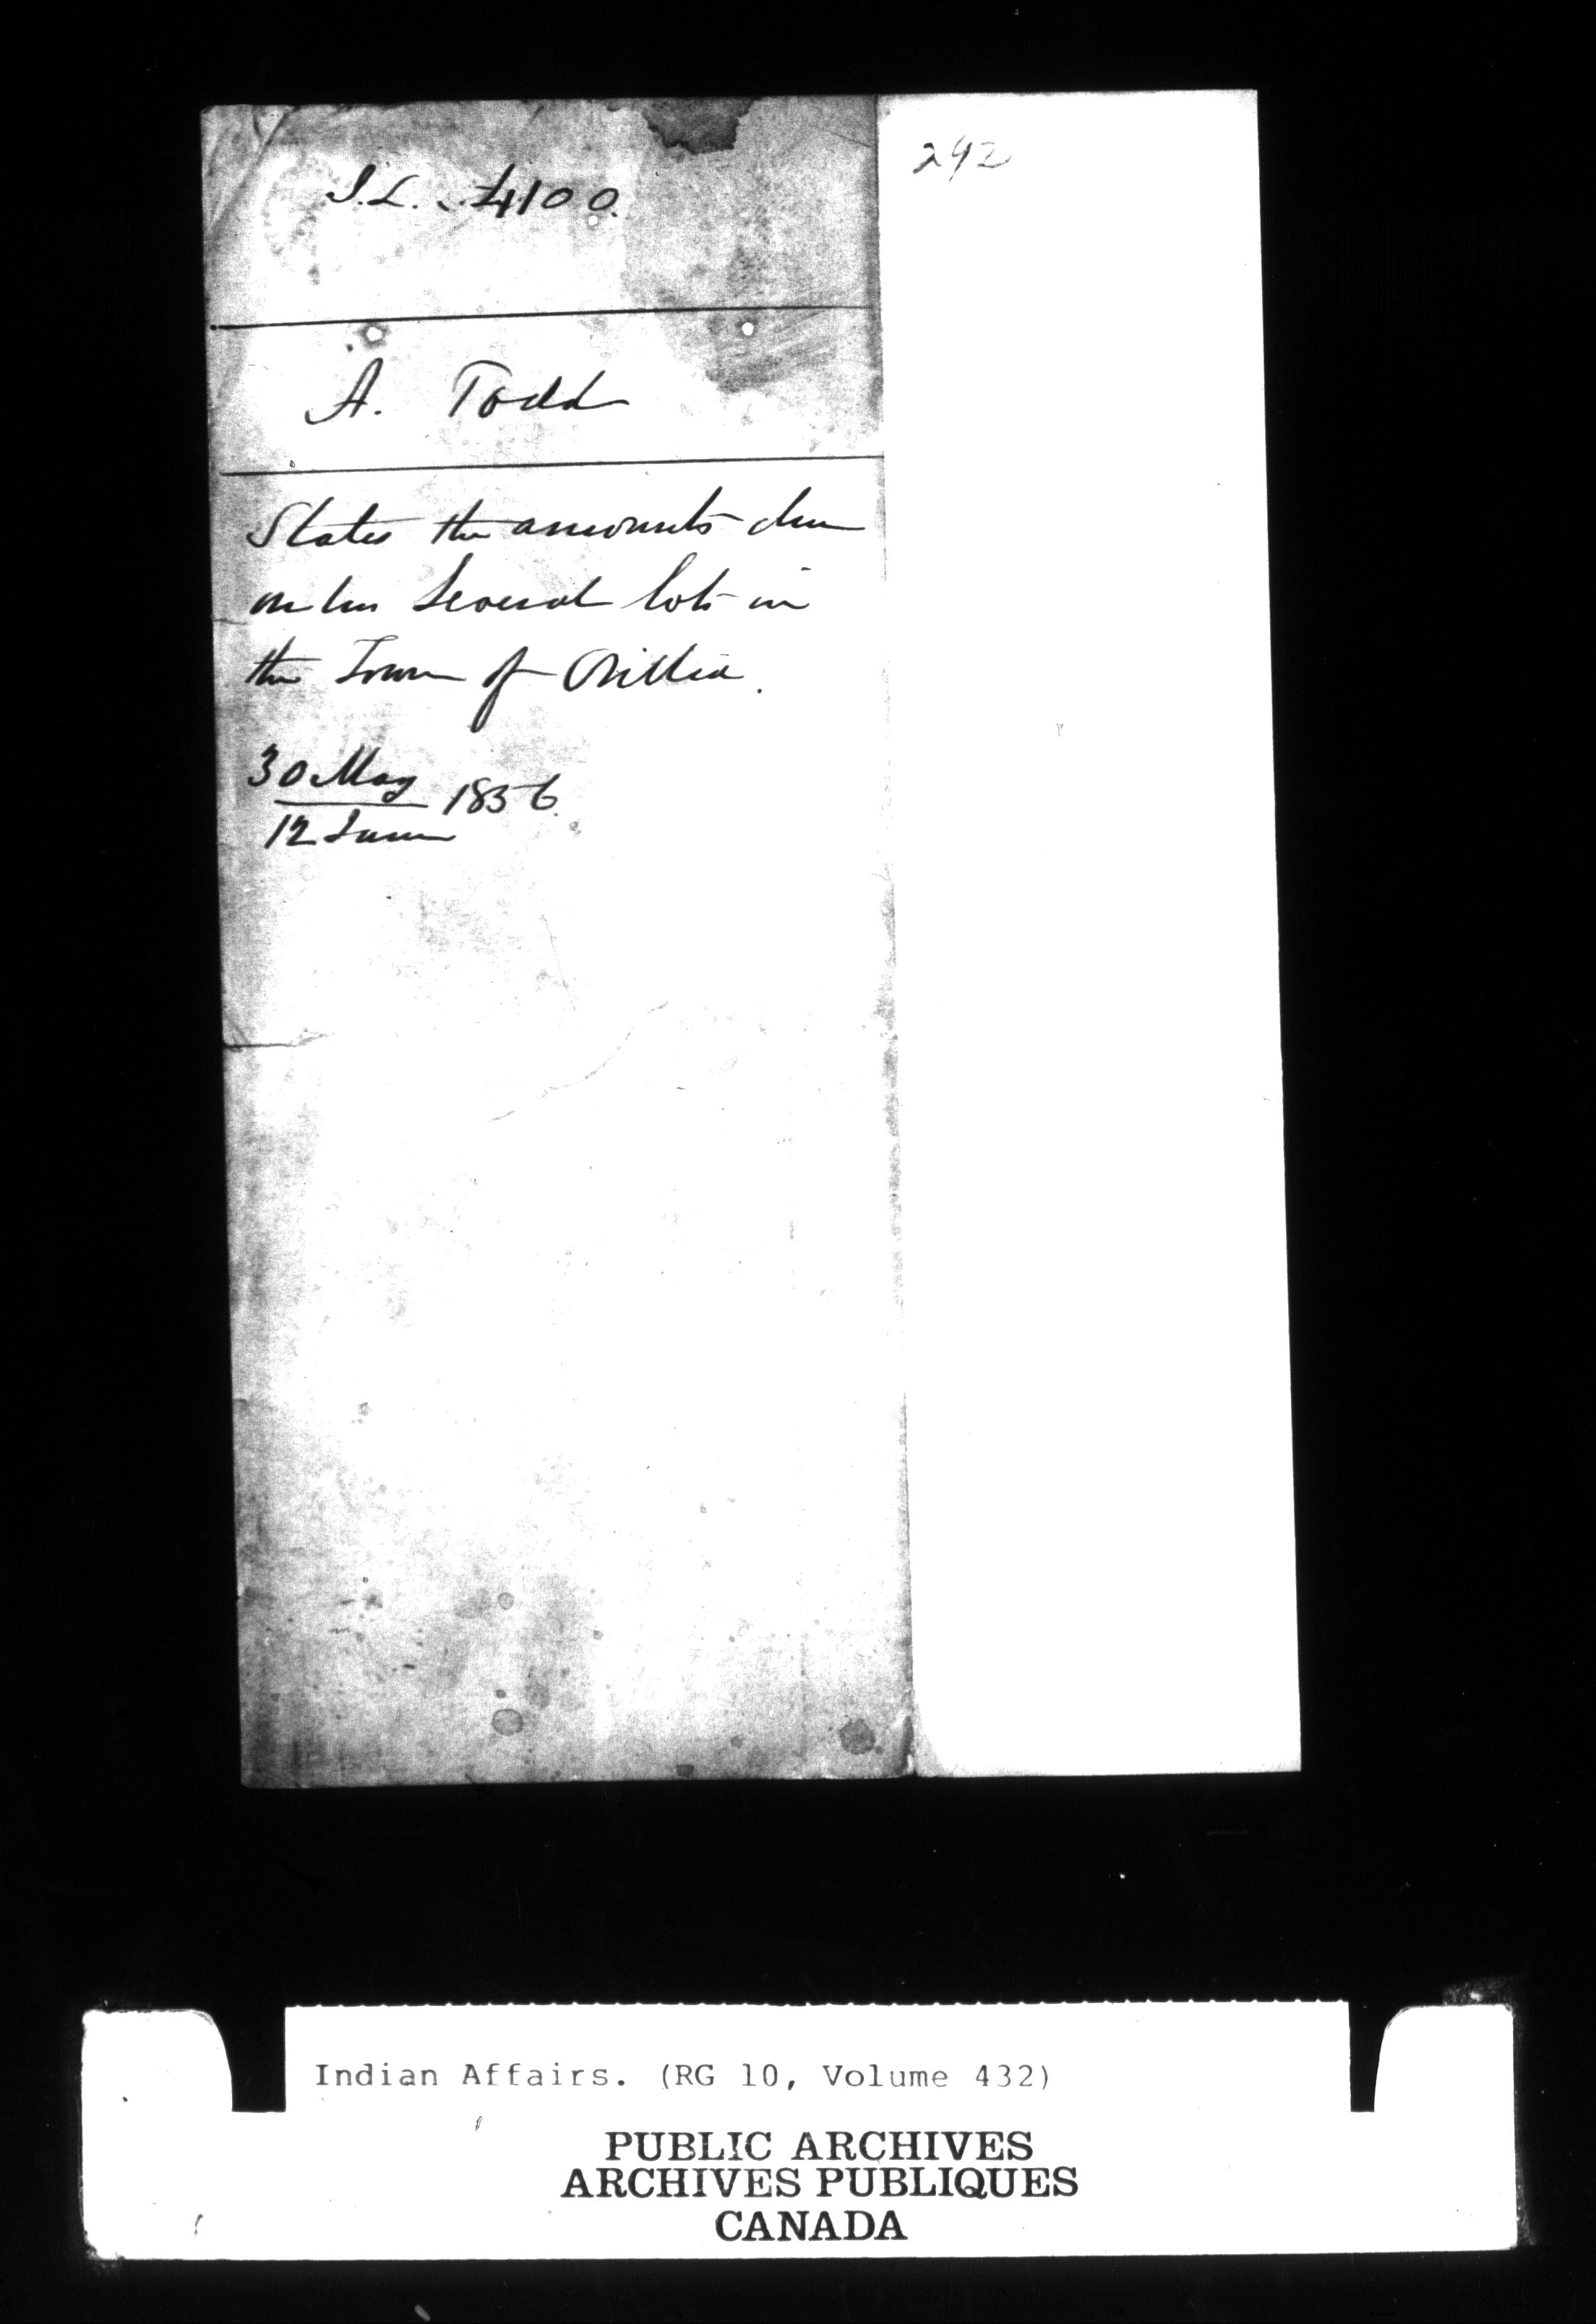 292
I.L. 4100.
A. Todd
States the amounts due
on his several lots in
the Town of Orillia.
30 May
1856.
12 June
Indian Affairs. (RG 10, Volume 432)
PUBLIC ARCHIVES
ARCHIVES PUBLIQUES
CANADA